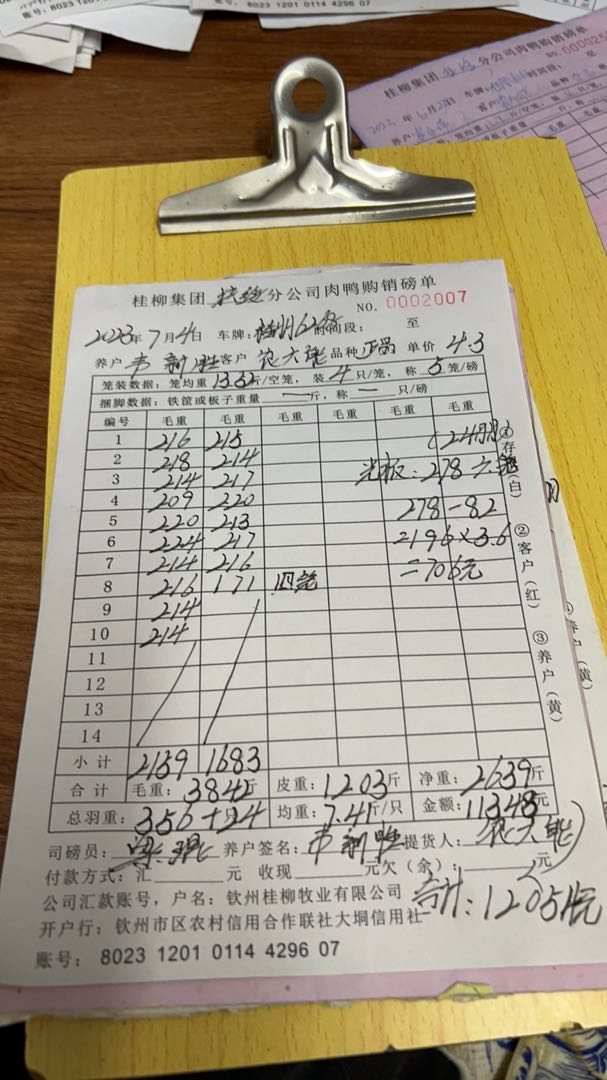 账号：8023 1201 0114 4296 07
桂柳集团 分公司肉鸭购销磅单
桂柳集团 分公司肉鸭购销磅单
NO. 0002007
2023年7月4日 车牌： 时间段： 至
养户 韦新胜 客户 农大能 品种 正品 单价 4.3
笼装数据：笼均重 13.32斤/空笼，装 4 只/笼，称 5 笼/磅
捆脚数据：铁筐或板子重量 一 斤，称 一 只/磅
编号 毛重 毛重 毛重 毛重 毛重 毛重
1 216 215
2 218 214
3 214 217 光板：278
4 209 220 278-82
5 220 213
6 224 217 2196×3.6
7 214 216 =706元
8 216 171 四笼
9 214
10 214
11
12
13
14
小计 2159 1683
合计 毛重：3842斤 皮重：1203斤 净重：2639斤
总羽重：356+24 均重：7.41斤/只 金额：11348元
司磅员： 养户签名：韦新胜 提货人：农大能
付款方式：汇 元 收现 元欠（余）： 元
公司汇款账号，户名：钦州桂柳牧业有限公司
合计：12054元
开户行：钦州市区农村信用合作联社大垌信用社
账号：8023 1201 0114 4296 07
①存（白）
②客户（红）
③养户（黄）